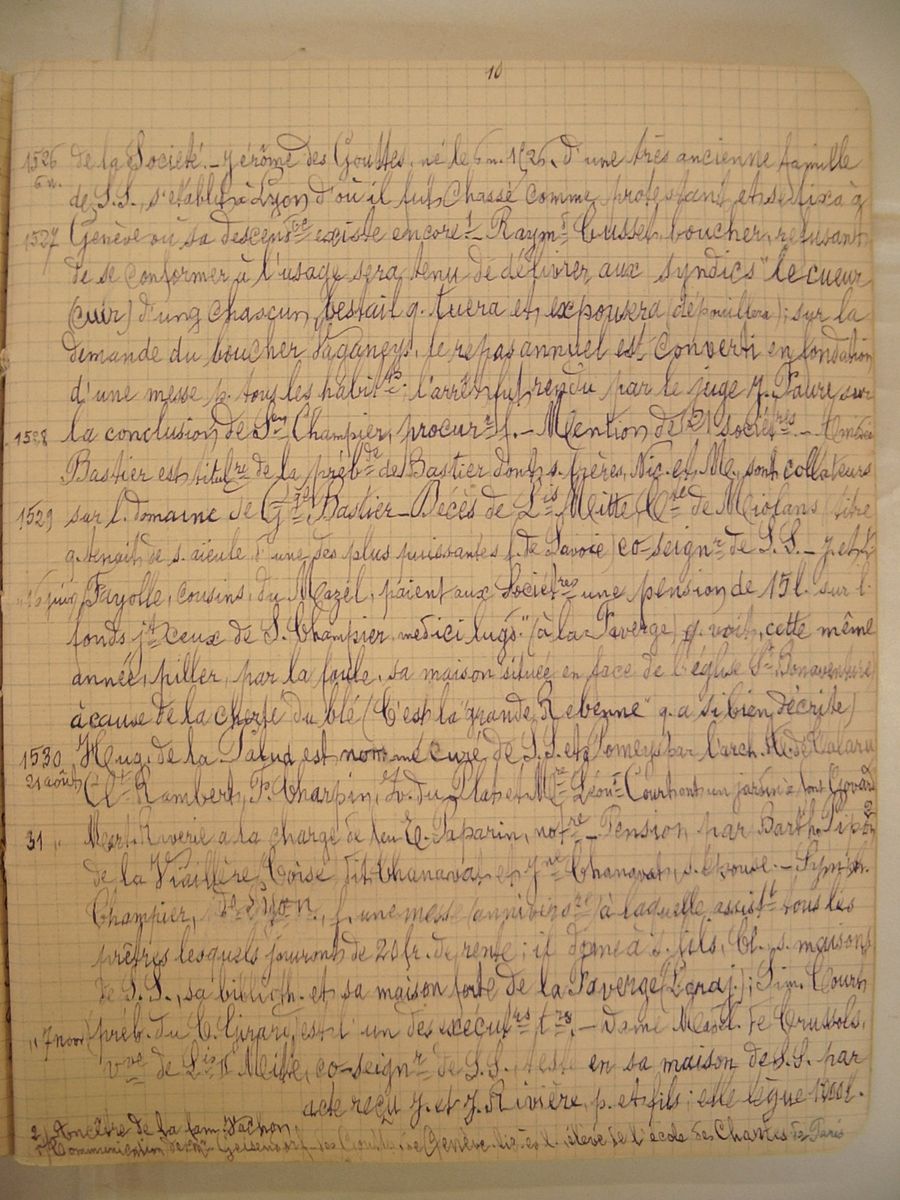 10
1526 de la Société. - Jérôme des Gouttes, né le 6 n. 1526, d'une très ancienne famille
6 n. de S.S., s'établit à Lyon d'où il fut chassé comme protestant et se fixa à
1527 Genève où sa descend.ce existe encore 1 - Raym.d Cusset, boucher, refusant
de se conformer à l'usage sera tenu de délivrer aux syndics "le cueur
(cuir) d'ung chascun bestail q. tuera et expousra (dépouillera); sur la
demande du boucher Vaganeys, le repas annuel est converti en fondation
d'une messe p. tous les habit.ts; l'arrêt fut rendu par le juge J. Faure sur
1528 la conclusion de Champier, procur.r f. - Mention de 21 sociét.res -
Bastier est titul.re de la préb.de de Bastier dont s. frères, Nic. et M., sont collateurs
1529 sur l. domaine de Bastier - Décès de L.is Mitte, C.te de Miolans (titre
q. tenait de s. aïeule d'une des plus puissantes f. de Savoie) co-seign.r de S.S. - J. et
16 juin Fayolle, cousins, du Mazel, paient aux Sociét.res une pension de 15 l. sur l.
fonds j.t ceux de S. Champier "medici lugd." (à la Faverge) q. voit, cette même
année, piller, par la foule, sa maison située en face de l'église S.t Bonaventure
à cause de la cherté du blé (C'est la "grande Rebenne" q. a si bien décrite)
1530 Hug. de la Palud est nommé curé de S.S. et Pomeys par l'arch.
21 août Cl. Rambert, P. Charpin, du Plat et Léon Court ont un jardin
31 " Mart. Riverie a la charge de feu E. Paparin, not.re - Pension par Barth. Pipon 2
de la Viallière, Coise, dit Chanavat et Chanavat, s. épouse. - Symph.
Champier, de Lyon, f. une messe (annivers.re) à laquelle assist.t tous les
prêtres lesquels jouiront de 20 fr. de rente; il donne à s. fils, Cl., s. maisons
de S.S., sa biblioth. et sa maison forte de la Faverge (Laraj.); Sim. Court
" 7 nov. préb. du C. Girard, est l'un des exécut.rs t.res. - Dame Mad. de Crussols,
v.ve de L.is II Mitte, co-seign.r de S.S. teste en sa maison de S.S. par
acte reçu J. et J. Rivière, p. et fils; elle lègue
2/ Ancêtre de la fam. Vachon
1/ Communication de M. Geisendorf-des Gouttes, de Genève, élève de l'école des Chartes de Paris